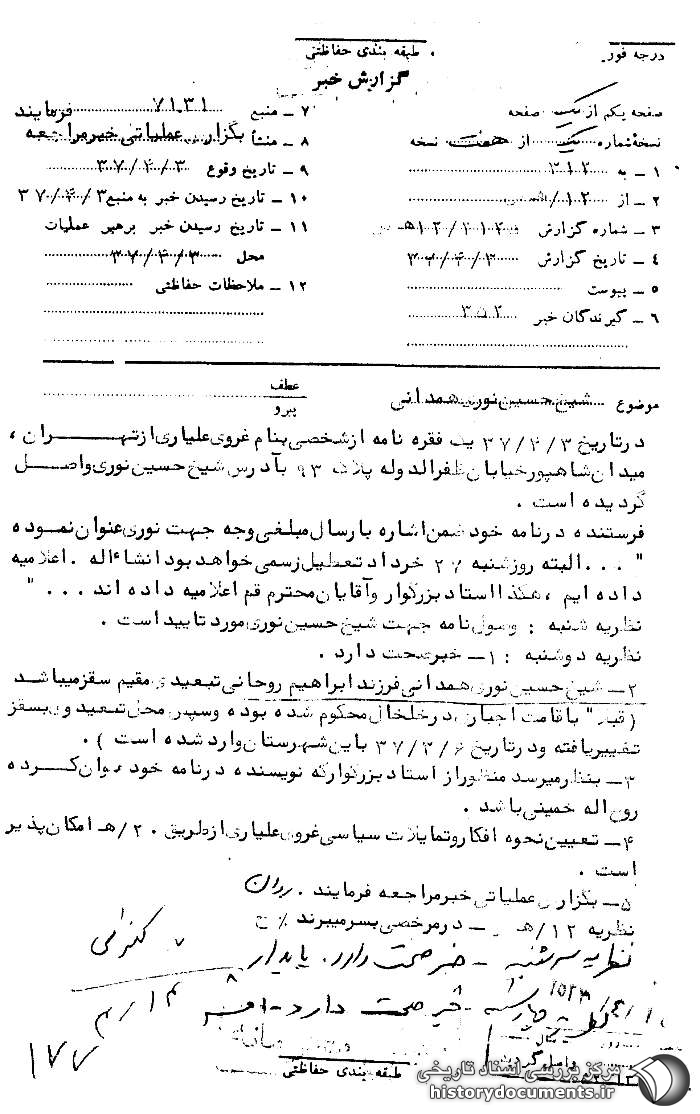 درجه فوریت
طبقه بندی حفاظتی
گزارش خبر
صفحه یکم از یک صفحه
نسخه شماره یک از هفت نسخه
۱ - به ۳۱۲
۲ - از ۱۲/
۳ - شماره گزارش
۴ - تاریخ گزارش ۳۷/۴/۳
۵ - پیوست
۶ - گیرندگان خبر ۳۵۲
۷ - منبع ۷۱۳۱
۸ - منشأ بگزارش عملیاتی خبر مراجعه فرمایند
۹ - تاریخ وقوع ۳۷/۴/۳
۱۰ - تاریخ رسیدن خبر به منبع ۳۷/۴/۳
۱۱ - تاریخ رسیدن خبر برهبر عملیات
محل ۳۷/۴/۳
۱۲ - ملاحظات حفاظتی
موضوع شیخ حسین نوری همدانی
عطف
پیرو
در تاریخ ۳۷/۴/۳ یک فقره نامه از شخصی بنام غروی علیاری از تهران ،
میدان شاهپور خیابان ظفرالدوله پلاک ۹۳ بآدرس شیخ حسین نوری واصل
گردیده است .
فرستنده در نامه خود ضمن اشاره بارسال مبلغی وجه جهت نوری عنوان نموده
" ... البته روز شنبه ۲۷ خرداد تعطیل رسمی خواهد بود انشاءاله . اعلامیه
داده ایم ، هکذا استاد بزرگوار و آقایان محترم قم اعلامیه داده اند ... "
نظریه شنبه : وصول نامه جهت شیخ حسین نوری مورد تایید است .
نظریه دوشنبه : ۱- خبر صحت دارد .
۲- شیخ حسین نوری همدانی فرزند ابراهیم روحانی تبعیدی مقیم سقز میباشد
( قبلا" باقامت اجباری در خلخال محکوم شده بوده و سپس محل تبعید وی بسقز
تغییر یافته و در تاریخ ۳۷/۲/۶ باین شهرستان وارد شده است ) .
۳- بنظر میرسد منظور از استاد بزرگوار که نویسنده در نامه خود عنوان کرده
روح اله خمینی باشد .
۴- تعیین نحوه افکار و تمایلات سیاسی غروی علیاری از طریق ۲۰/هـ امکان پذیر
است .
۵- بگزارش عملیاتی خبر مراجعه فرمایند . روان
نظریه ۱۲/هـ - در مرخصی بسر میبرند
نظریه سه شنبه - خبر صحت دارد. پایدار
نظریه چهارشنبه - خبر صحت دارد -
۴/۱۴
۱۷۷
طبقه بندی حفاظتی
مرکز بررسی اسناد تاریخی
historydocuments.ir